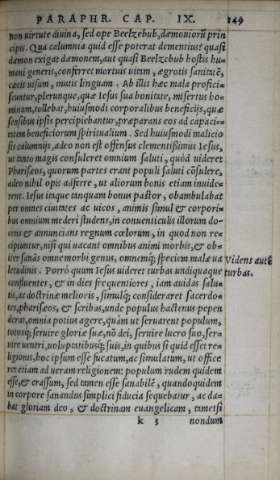 PARAPHR. CAP. IX. 149
non virtute diuina, sed ope Beelzebub, dæmoniorũ prin
cipis. Qua calumnia quid esse poterat dementius? quasi
dæmon exigat dæmonem, aut quasi Beelzebub hostis hu-
mani generis, conferret mortuis vitam, ægrotis sanitatẽ,
cæcis visum, mutis linguam. Ab illis hæc mala profici-
scuntur, plerunque, quæ Iesus sua bonitate, misertus ho-
minum, tollebat, huiusmodi corporalibus beneficijs, quæ
sensibus ipsis percipiebantur, præparans eos ad capaci-
tatem beneficiorum spiritualium. Sed huiusmodi malicio
sis calumnijs, adeo non est offensus clementissimus Iesus,
ut tanto magis consuleret omnium saluti, quòd uideret
Phariseos, quorum partes erant populi saluti cõsulere,
adeo nihil opis adferre, ut aliorum bonis etiam inuide-
rent. Iesus itaque tanquam bonus pastor, obambulabat
per omnes ciuitates ac uicos, animis simul & corpori-
bus omnium mederi studens, in conuenticulis illorum do-
cens & annuncians regnum cœlorum, in quod non re-
cipiuntur, nisi qui uacant omnibus animi morbis, & ob-
iter sanãs omne morbi genus, omnemq; speciem malæ ua Videns autẽ
letudinis. Porrò quum Iesus uideret turbas undiquaque turbas.
confluentes, & in dies frequentiores, iam auidas salu-
tis, ac doctrinæ melioris, simulq; consideraret sacerdo-
tes, phariseos, & scribas, unde populus hactenus pepen
derat, omnia potius agere, quàm ut seruarent populum,
totosq; seruire gloriæ suæ, nõ dei, seruire lucro suo, ser-
uire uentri, uoluptatibusq; suis, in quibus si quid esset re-
ligionis, hoc ipsum esse fucatum, ac simulatum, ut office
ret etiam ad ueram religionem: populum rudem quidem
esse, & crassum, sed tamen esse sanabilẽ, quandoquidem
in corpore sanandus simplici fiducia sequebatur, ac da-
bat gloriam deo, & doctrinam euangelicam, tametsi
k 5 nondum